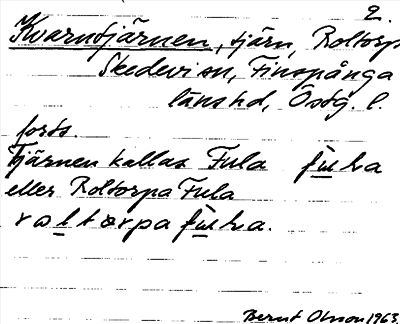 2.
Kvarntjärnen, tjärn, Roltorp
Skedevi sn, Finspånga
länshd, Östg. l.
forts.
Tjärnen kallas Fula fula
eller Roltorpa Fula
roltorpa fula.
Bernt Olsson 1963